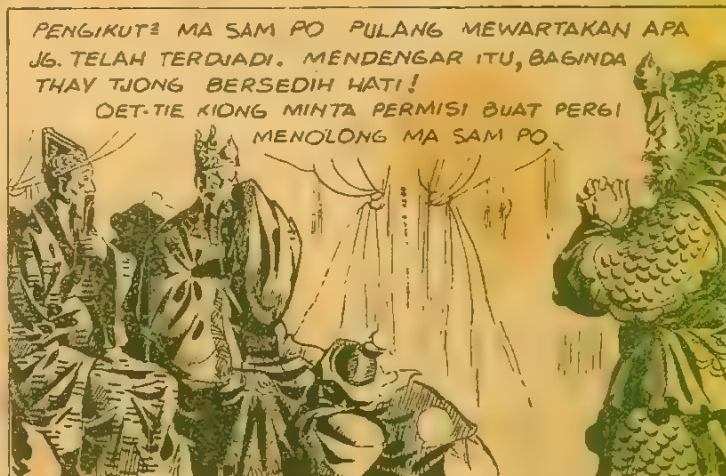 PENGIKUT² MA SAM PO PULANG MEWARTAKAN APA
JG. TELAH TERDJADI. MENDENGAR ITU, BAGINDA
THAY TJONG BERSEDIH HATI!
OET-TIE KIONG MINTA PERMISI BUAT PERGI
MENOLONG MA SAM PO